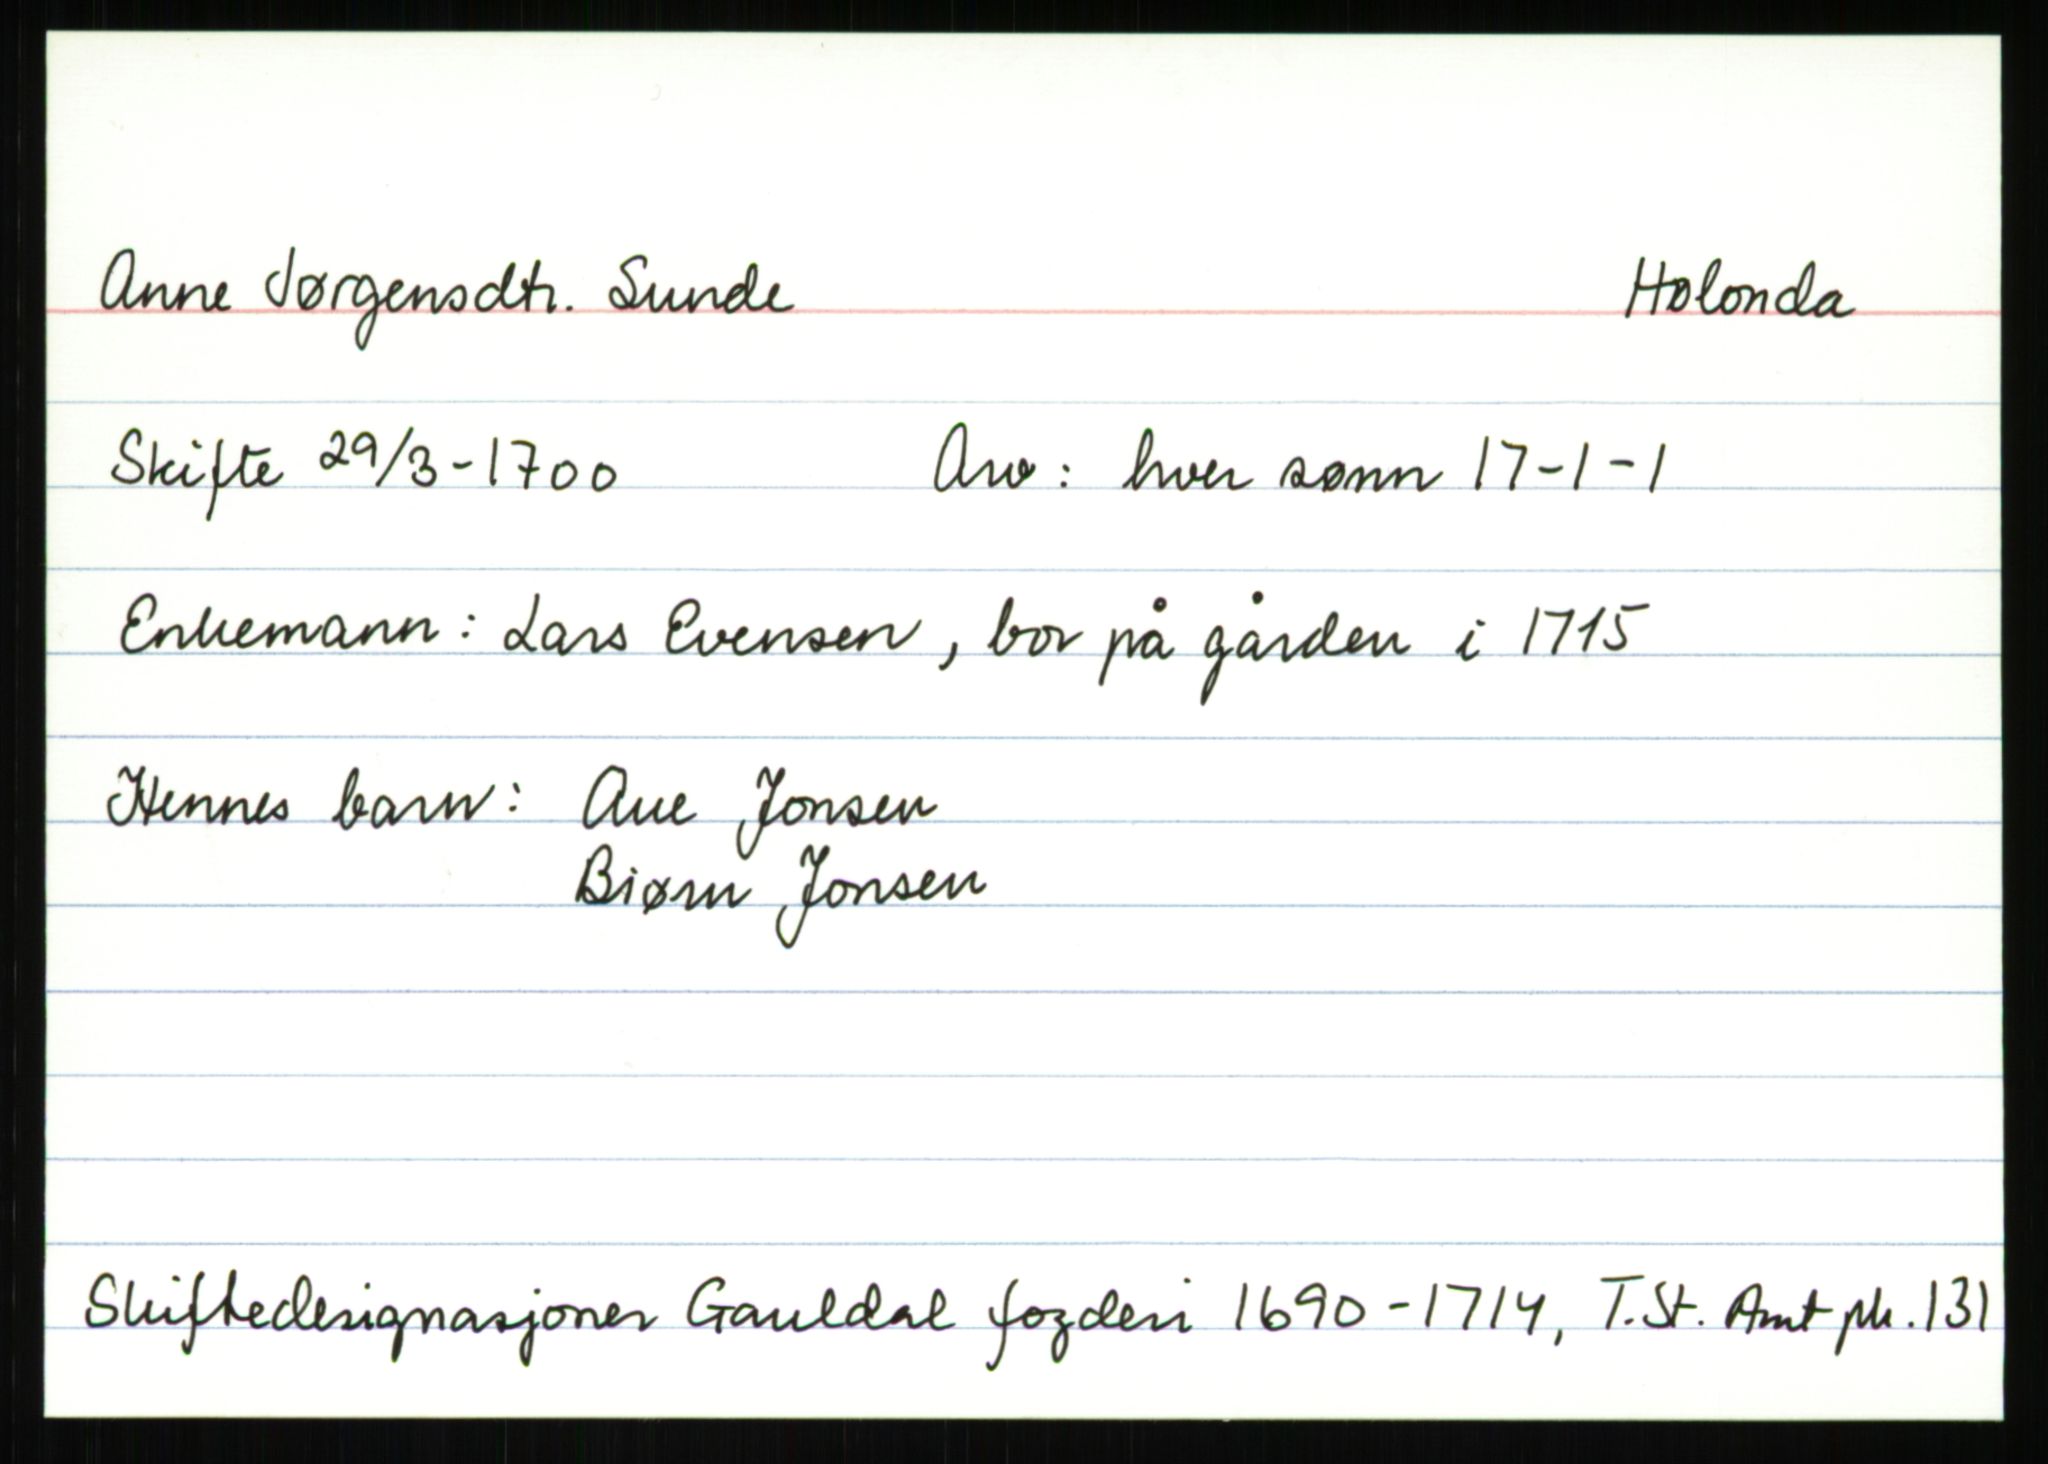 Anne Jørgensdtr. Sunde Hølonda
Skifte 29/3-1700 Arv: hver sønn 17-1-1
Enkemann: Lars Evensen, bor på gården i 1715
Hennes barn: Ane Jonsen
Biørn Jonsen
Skiftedesignasjoner Gauldal fogderi 1690-1714, T.St. Amt pk. 131